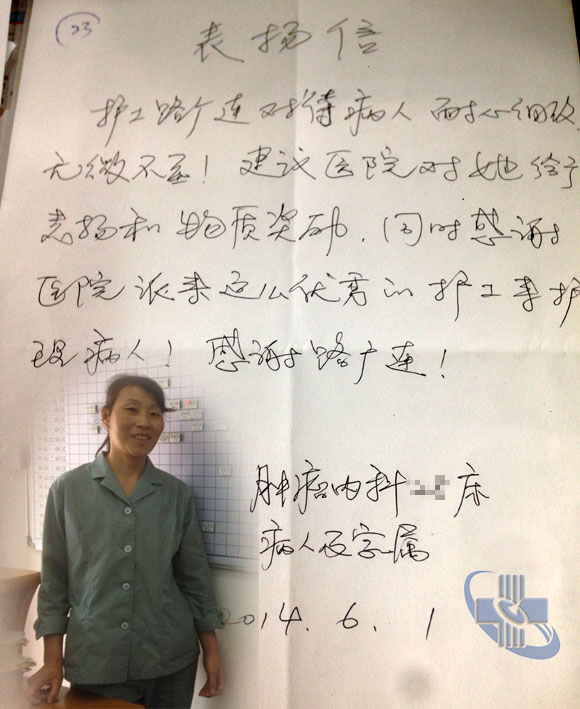 23
表扬信
护工路广连对待病人耐心细致
无微不至！建议医院对她给予
表扬和物质奖励，同时感谢
医院派来这么优秀的护工来护
理病人！感谢路广连！
肿瘤内科 床
病人及家属
2014.6.1